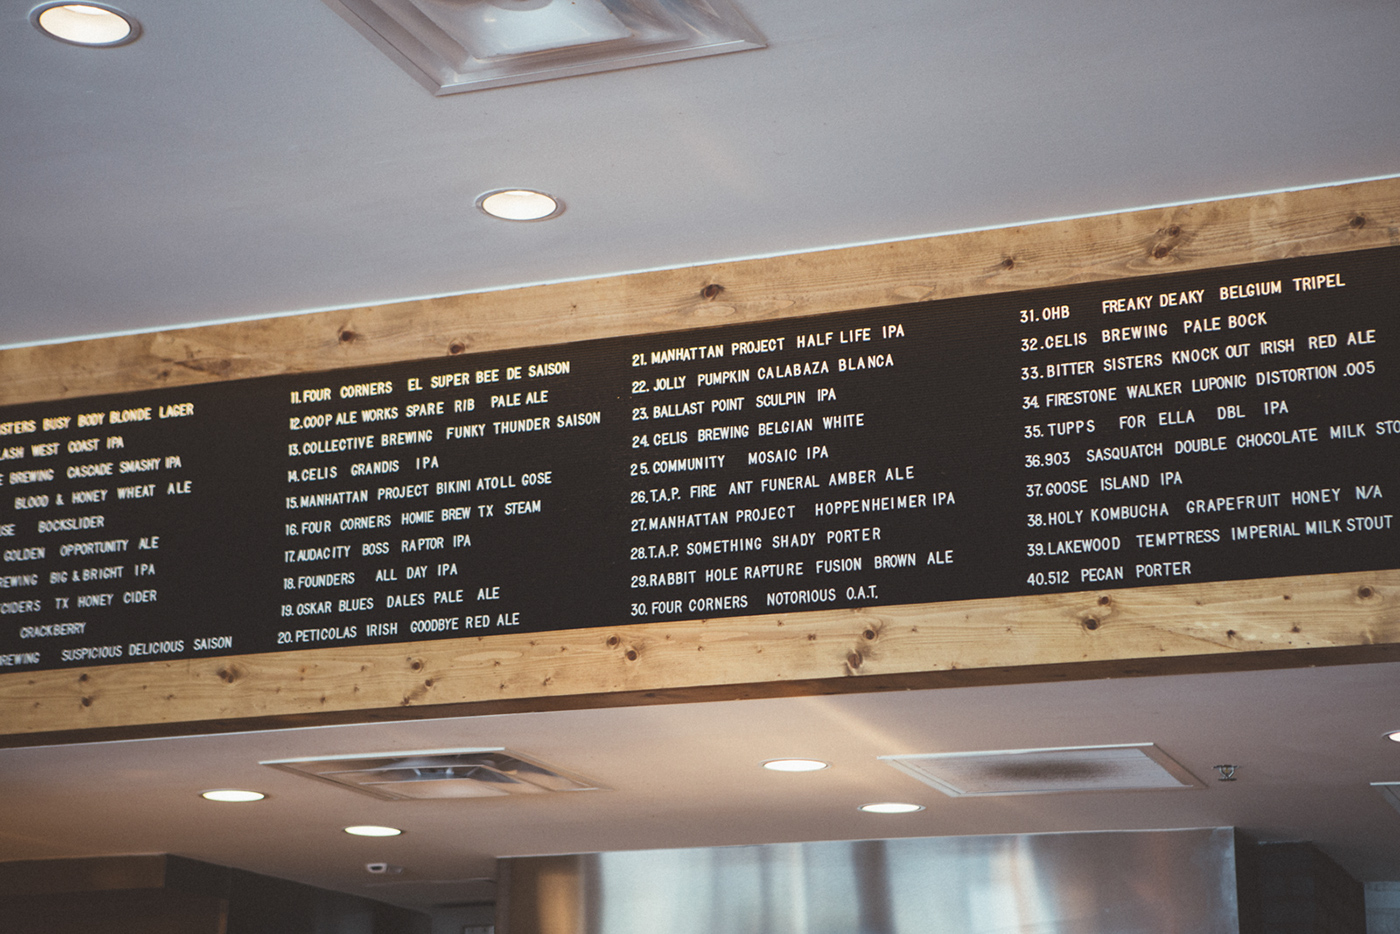 BUSY BODY BLONDE LAGER
WEST COAST IPA
BREWING CASCADE SMASHY IPA
BLOOD & HONEY WHEAT ALE
BOCKSLIDER
GOLDEN OPPORTUNITY ALE
BIG & BRIGHT IPA
CIDERS TX HONEY CIDER
CRACKBERRY
SUSPICIOUS DELICIOUS SAISON
11. FOUR CORNERS EL SUPER BEE DE SAISON
12. COOP ALE WORKS SPARE RIB PALE ALE
13. COLLECTIVE BREWING FUNKY THUNDER SAISON
14. CELIS GRANDIS IPA
15. MANHATTAN PROJECT BIKINI ATOLL GOSE
16. FOUR CORNERS HOMIE BREW TX STEAM
17. AUDACITY BOSS RAPTOR IPA
18. FOUNDERS ALL DAY IPA
19. OSKAR BLUES DALES PALE ALE
20. PETICOLAS IRISH GOODBYE RED ALE
21. MANHATTAN PROJECT HALF LIFE IPA
22. JOLLY PUMPKIN CALABAZA BLANCA
23. BALLAST POINT SCULPIN IPA
24. CELIS BREWING BELGIAN WHITE
25. COMMUNITY MOSAIC IPA
26. T.A.P. FIRE ANT FUNERAL AMBER ALE
27. MANHATTAN PROJECT HOPPENHEIMER IPA
28. T.A.P. SOMETHING SHADY PORTER
29. RABBIT HOLE RAPTURE FUSION BROWN ALE
30. FOUR CORNERS NOTORIOUS O.A.T.
31. OHB FREAKY DEAKY BELGIUM TRIPEL
32. CELIS BREWING PALE BOCK
33. BITTER SISTERS KNOCK OUT IRISH RED ALE
34. FIRESTONE WALKER LUPONIC DISTORTION .005
35. TUPPS FOR ELLA DBL IPA
36. 903 SASQUATCH DOUBLE CHOCOLATE MILK STO
37. GOOSE ISLAND IPA
38. HOLY KOMBUCHA GRAPEFRUIT HONEY N/A
39. LAKEWOOD TEMPTRESS IMPERIAL MILK STOUT
40. 512 PECAN PORTER